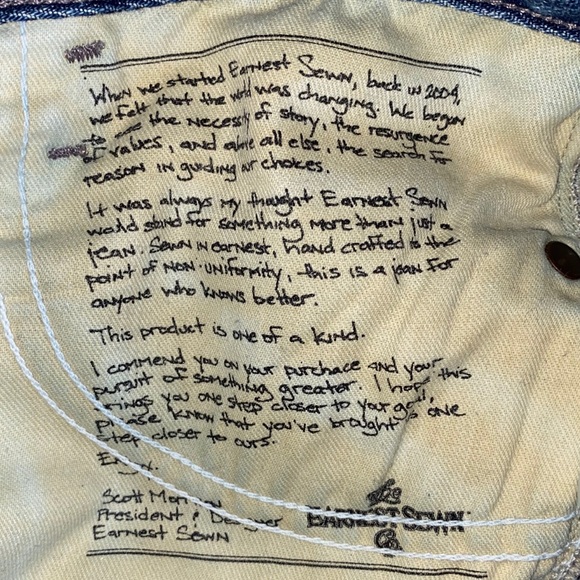 When we started Earnest Sewn, back in 2004,
we felt that the world was changing. We began
to see the necessity of story, the resurgence
of values, and above all else, the search for
reason in guiding our choices.
It was always my thought Earnest Sewn
would stand for something more than just a
jean. Sewn in earnest, hand crafted to the
point of non-uniformity, this is a jean for
anyone who knows better.
This product is one of a kind.
I commend you on your purchace and your
pursuit of something greater. I hope this
brings you one step closer to your goal,
please know that you've brought us one
step closer to ours.
Enjoy.
Scott Morrison
President & Designer
Earnest Sewn
The
EARNEST SEWN
Co.